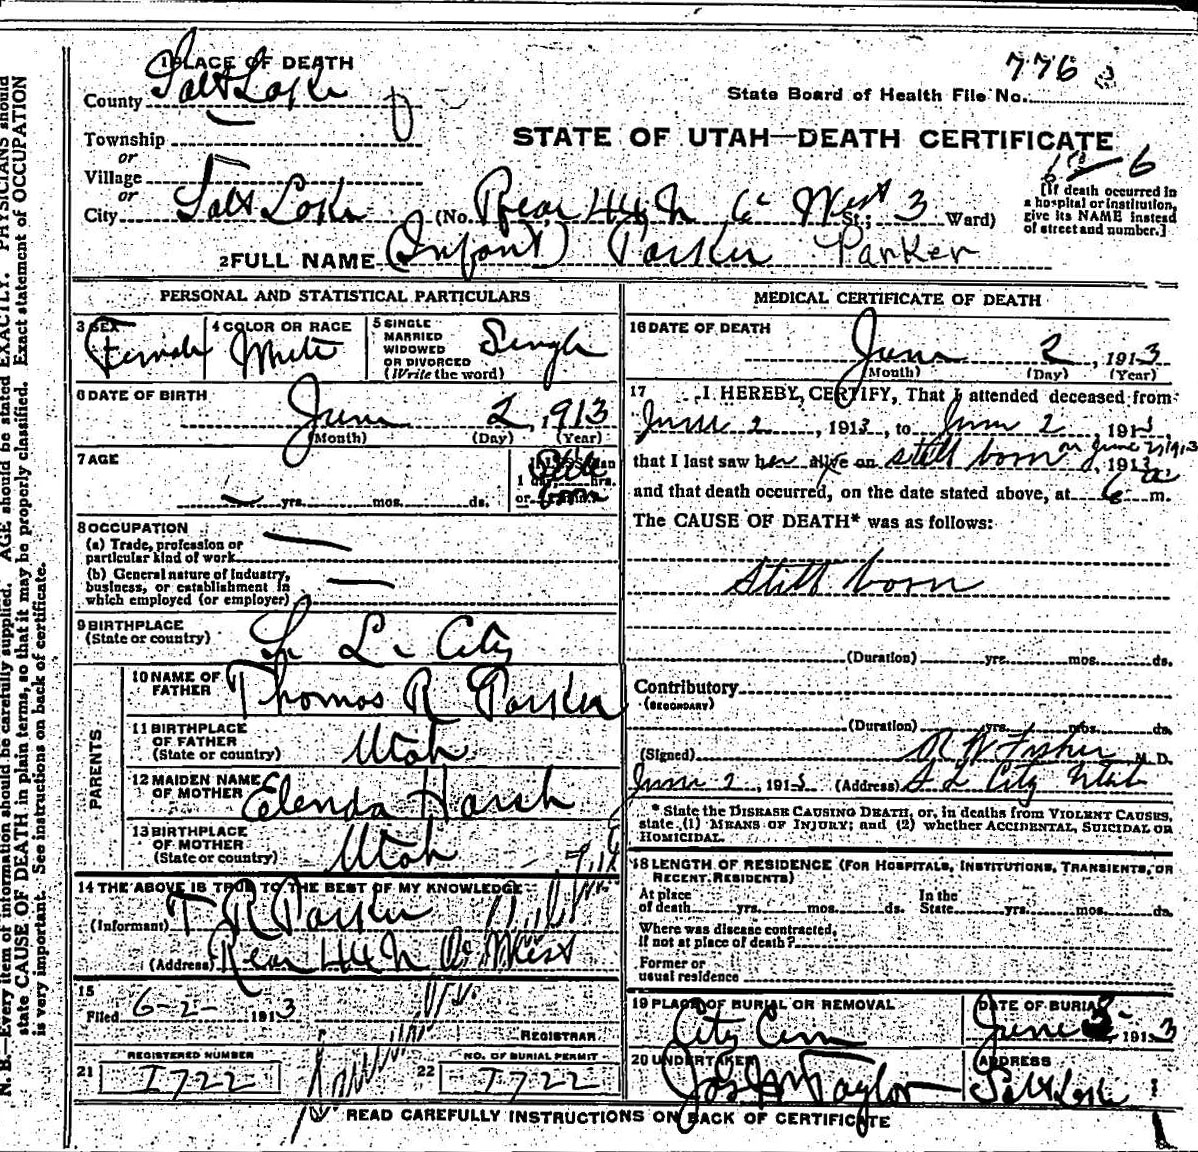 776
State Board of Health File No.
1 PLACE OF DEATH
County Salt Lake
STATE OF UTAH—DEATH CERTIFICATE
Township
or
Village
or
City Salt Lake (No. Rear 446 N 6 West St.; 3 Ward)
[If death occurred in a hospital or institution, give its NAME instead of street and number.]
2 FULL NAME (Infant) Parker Parker
PERSONAL AND STATISTICAL PARTICULARS
3 SEX Female
4 COLOR OR RACE White
5 SINGLE MARRIED WIDOWED OR DIVORCED (Write the word) Single
6 DATE OF BIRTH June 2, 1913
(Month) (Day) (Year)
7 AGE — yrs. mos. ds.
Still born
8 OCCUPATION
(a) Trade, profession or particular kind of work —
(b) General nature of industry, business, or establishment in which employed (or employer) —
9 BIRTHPLACE (State or country) S. L. City
PARENTS
10 NAME OF FATHER Thomas R Parker
11 BIRTHPLACE OF FATHER (State or country) Utah
12 MAIDEN NAME OF MOTHER Elenda Harsh
13 BIRTHPLACE OF MOTHER (State or country) Utah
14 THE ABOVE IS TRUE TO THE BEST OF MY KNOWLEDGE
(Informant) T R Parker
(Address) Rear 446 N 6 West
15
Filed 6-2- 1913
REGISTRAR.
REGISTERED NUMBER
21 1722
NO. OF BURIAL PERMIT
22 1722
MEDICAL CERTIFICATE OF DEATH
16 DATE OF DEATH June 2, 1913
(Month) (Day) (Year)
17 I HEREBY CERTIFY, That I attended deceased from
June 2, 1913, to June 2, 1913
that I last saw her alive on still born on June 2, 1913, 1913
and that death occurred, on the date stated above, at 6 a m.
The CAUSE OF DEATH* was as follows:
Still born
(Duration) yrs. mos. ds.
Contributory
(SECONDARY)
(Duration) yrs. mos. ds.
(Signed) R W Fisher M. D.
June 2, 1913 (Address) S L City Utah
* State the DISEASE CAUSING DEATH, or, in deaths from VIOLENT CAUSES, state (1) MEANS OF INJURY; and (2) whether ACCIDENTAL, SUICIDAL OR HOMICIDAL.
18 LENGTH OF RESIDENCE (FOR HOSPITALS, INSTITUTIONS, TRANSIENTS, OR RECENT RESIDENTS)
At place of death yrs. mos. ds. In the State yrs. mos. ds.
Where was disease contracted, if not at place of death?
Former or usual residence
19 PLACE OF BURIAL OR REMOVAL City Cem
DATE OF BURIAL June 3 1913
20 UNDERTAKER Jos Wm Taylor
ADDRESS Salt Lake
READ CAREFULLY INSTRUCTIONS ON BACK OF CERTIFICATE
N. B.—Every item of information should be carefully supplied. AGE should be stated EXACTLY. PHYSICIANS should
state CAUSE OF DEATH in plain terms, so that it may be properly classified. Exact statement of OCCUPATION
is very important. See instructions on back of certificate.